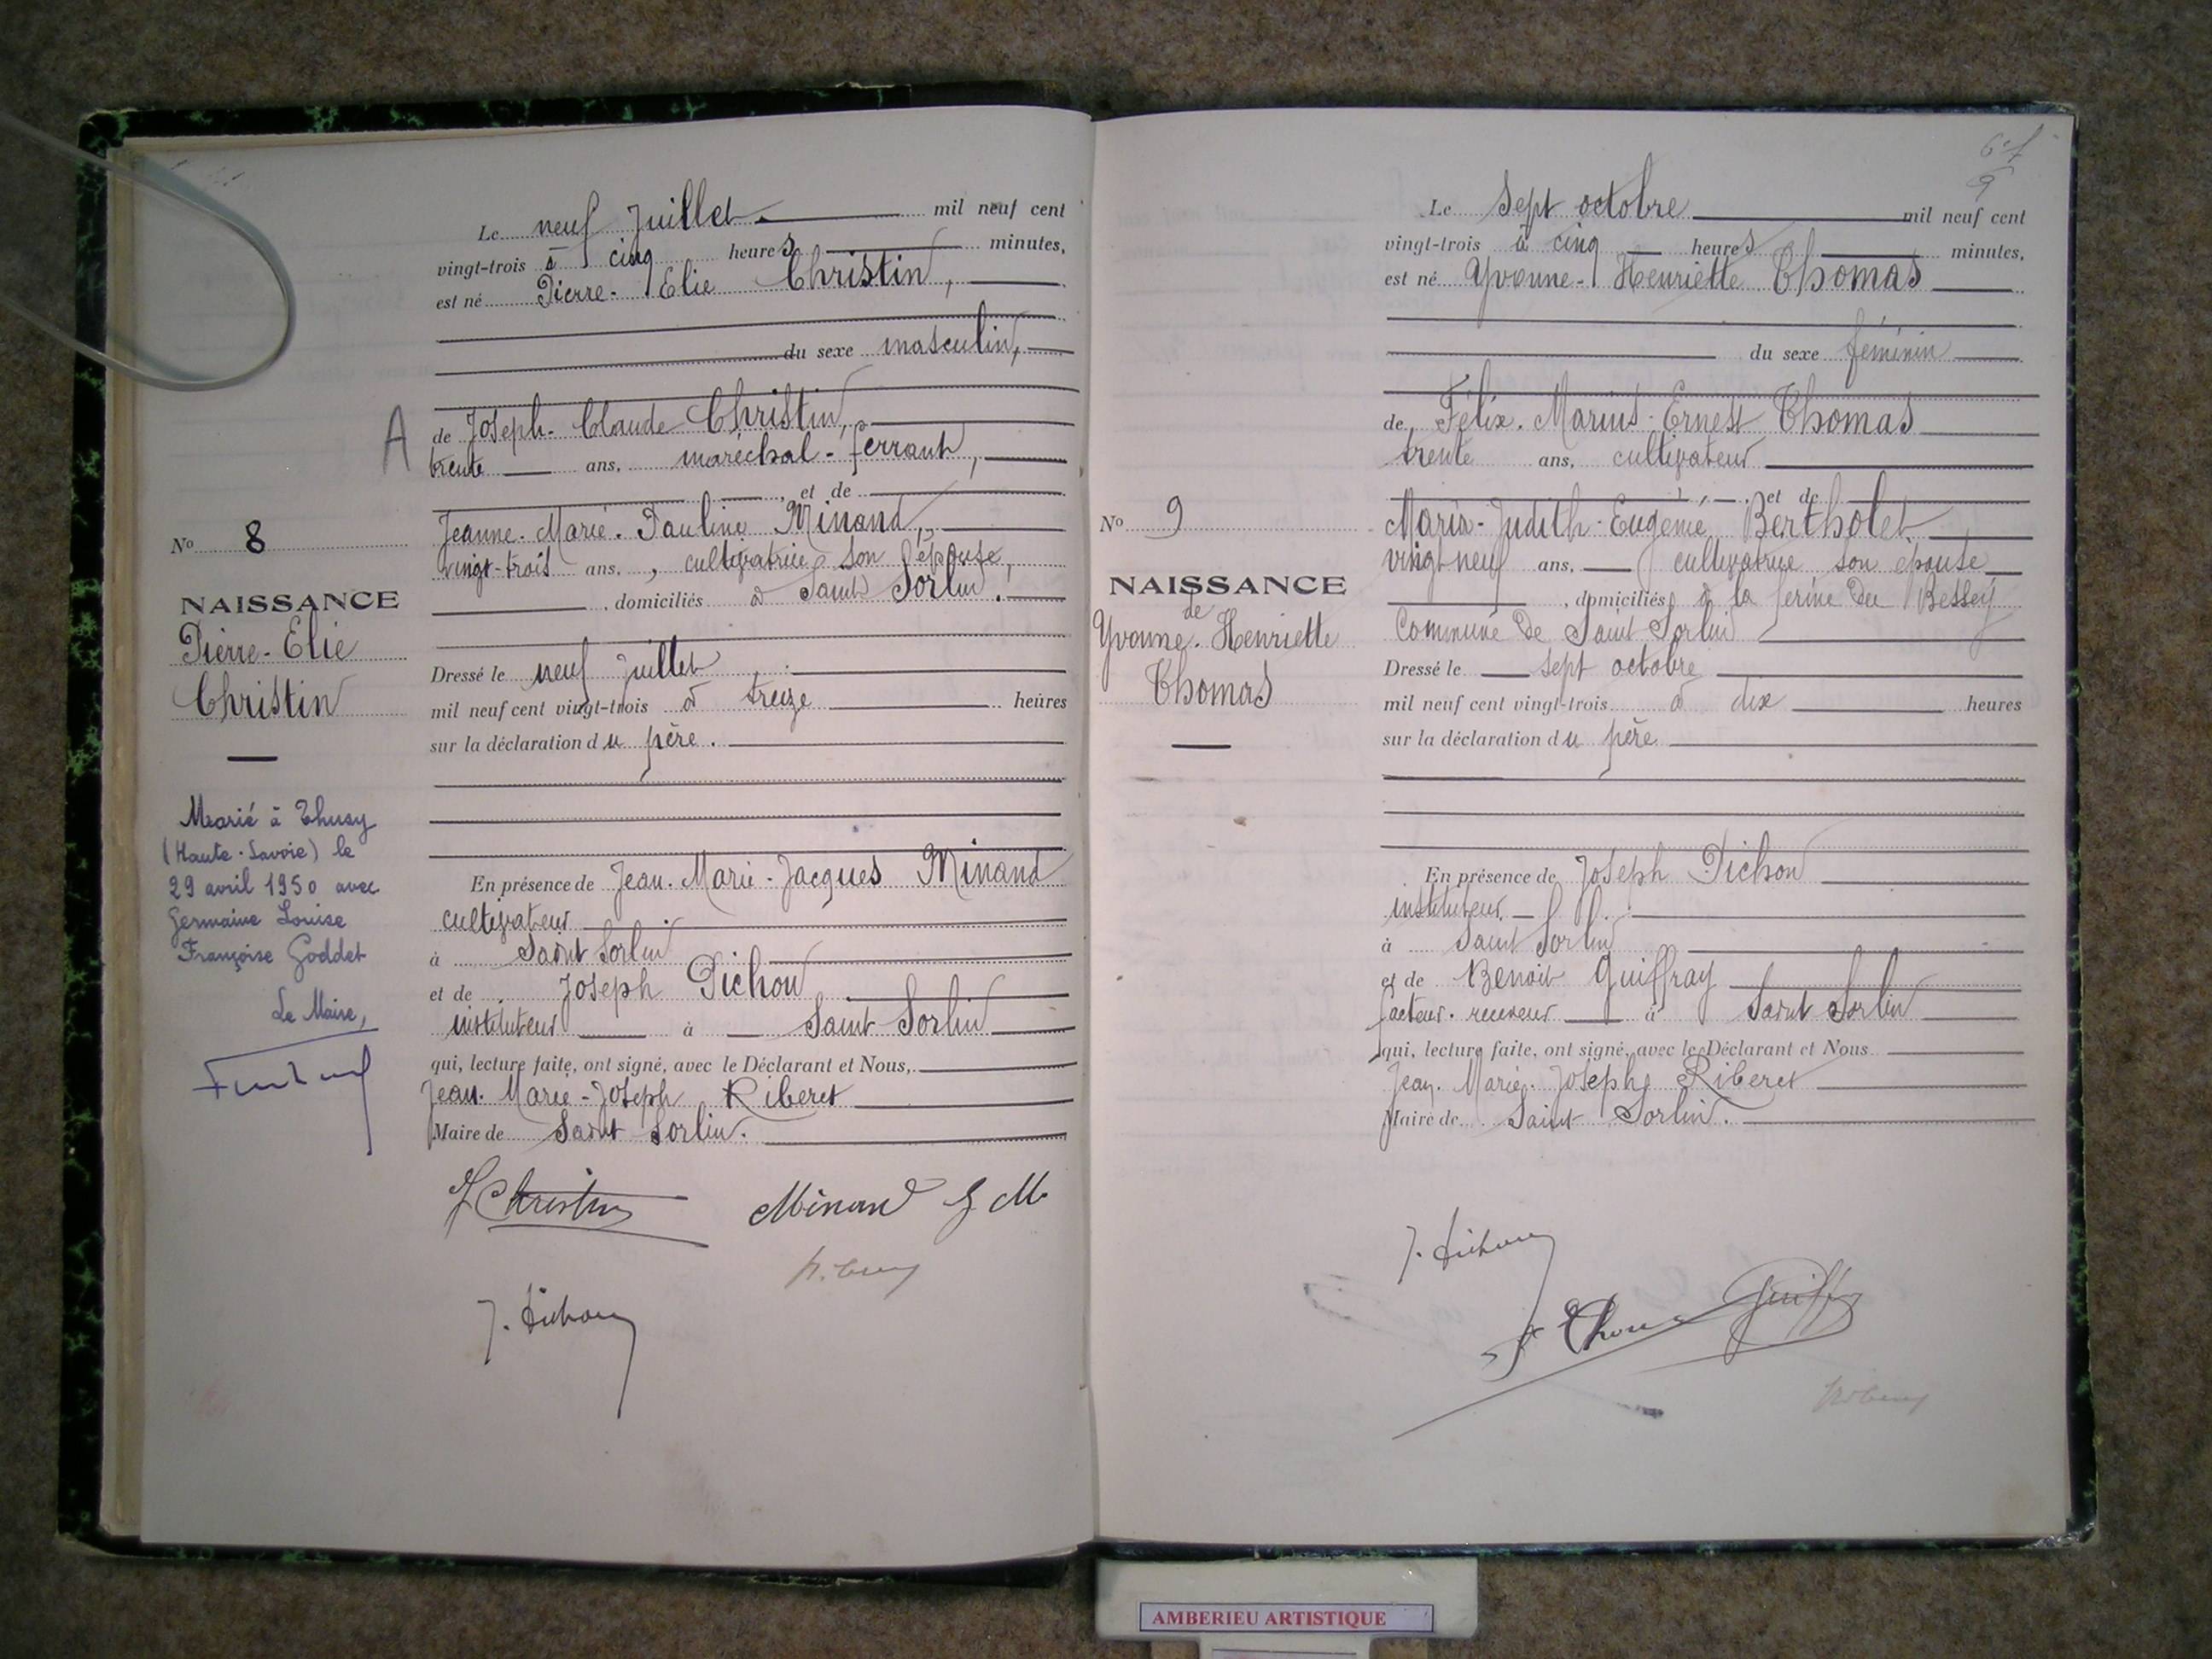 Le neuf Juillet mil neuf cent
vingt-trois à cinq heures minutes,
est né Pierre-Elie Christin,
du sexe masculin,
A
de Joseph-Claude Christin,
trente ans, maréchal-ferrant,
, et de
Jeanne-Marie-Pauline Minand,
vingt-trois ans, , cultivatrice son épouse,
, domiciliés à Saint Sorlin.
Dressé le neuf juillet
mil neuf cent vingt-trois à treize heures
sur la déclaration du père.
En présence de Jean-Marie-Jacques Minand
cultivateur
à Saint Sorlin
et de Joseph Pichon
instituteur à Saint Sorlin
qui, lecture faite, ont signé, avec le Déclarant et Nous,
Jean-Marie-Joseph Riberet
Maire de Saint Sorlin.
J Christin Minand J M
J. Pichon
No 8
NAISSANCE
Pierre-Elie
Christin
Marié à Thusy
(Haute-Savoie) le
29 avril 1950 avec
Germaine Louise
Françoise Goddet
Le Maire,
Le Sept octobre mil neuf cent
vingt-trois à cinq heures minutes,
est né Yvonne-Henriette Thomas
du sexe féminin
de Félix-Marius-Ernest Thomas
trente ans, cultivateur
, et de
Maria-Judith-Eugénie Bertholet
vingt neuf ans, cultivatrice son épouse
, domiciliés à la ferme du Bessey
Commune de Saint Sorlin
Dressé le sept octobre
mil neuf cent vingt-trois à dix heures
sur la déclaration du père
En présence de Joseph Pichon
instituteur
à Saint Sorlin
et de Benoit Guiffray
facteur-receveur à Saint Sorlin
qui, lecture faite, ont signé, avec le Déclarant et Nous
Jean-Marie-Joseph Riberet
Maire de Saint Sorlin.
J. Pichon
No 9
NAISSANCE
de
Yvonne-Henriette
Thomas
AMBERIEU ARTISTIQUE